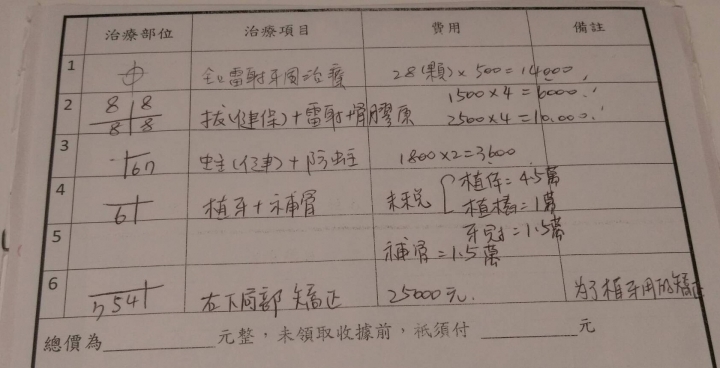 治療部位 治療項目 費用 備註
1 雷射牙周治療 28(顆)×500=14000
2 8 8 8 8 拔(健保)+雷射+骨膠原 1500×4=6000 2500×4=10,000
3 67 蛀(健)+防蛀 1800×2=3600
4 6 植牙+補骨 未稅 植体=4.5萬
植樁=1萬
5 牙冠=1.5萬
補骨=1.5萬
6 7 5 4 右下局部矯正 25000元. 為了植牙用的矯正
總價為 元整,未領取收據前,祇須付 元